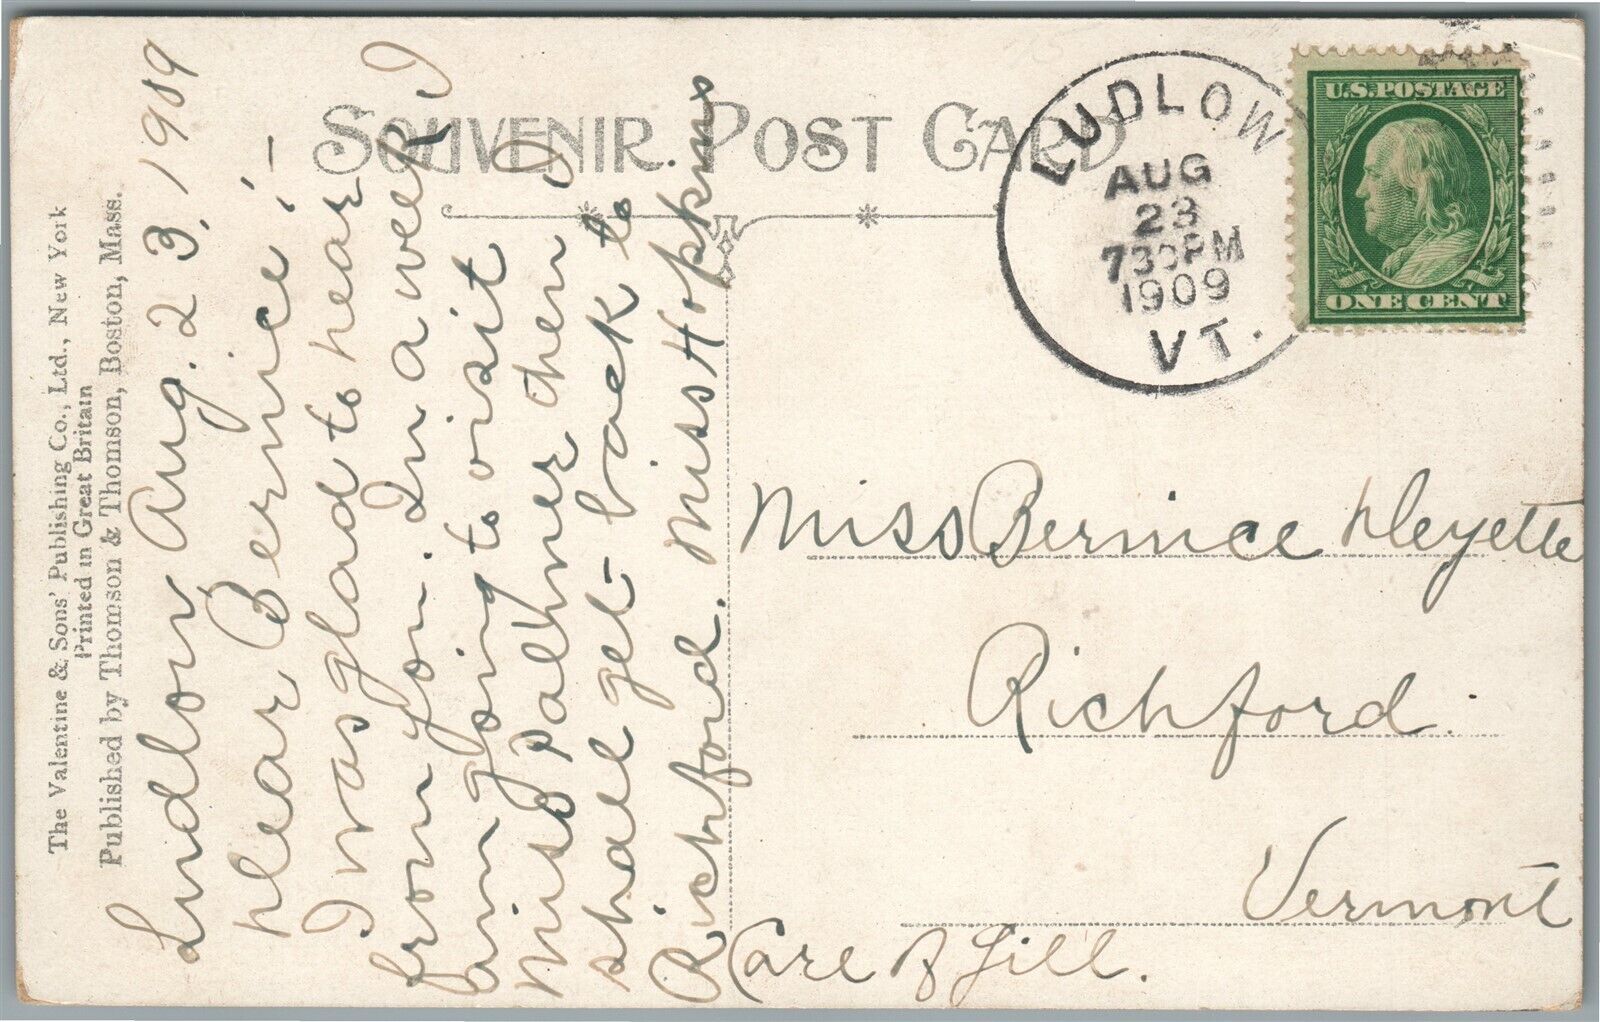 The Valentine & Sons' Publishing Co., Ltd., New York
Printed in Great Britain
Published by Thomson & Thomson, Boston, Mass.
SOUVENIR POST CARD
LUDLOW
AUG
23
730PM
1909
VT.
U.S. POSTAGE
ONE CENT
Ludlow Aug. 23, 1909
Dear Bernice:-
I was glad to hear
from you. In a week I
am going to visit
Miss Palmer then I
shall get back to
Richford. Miss Hopkins
Miss Bernice Deyette
Richford.
Vermont
Care of Jill.